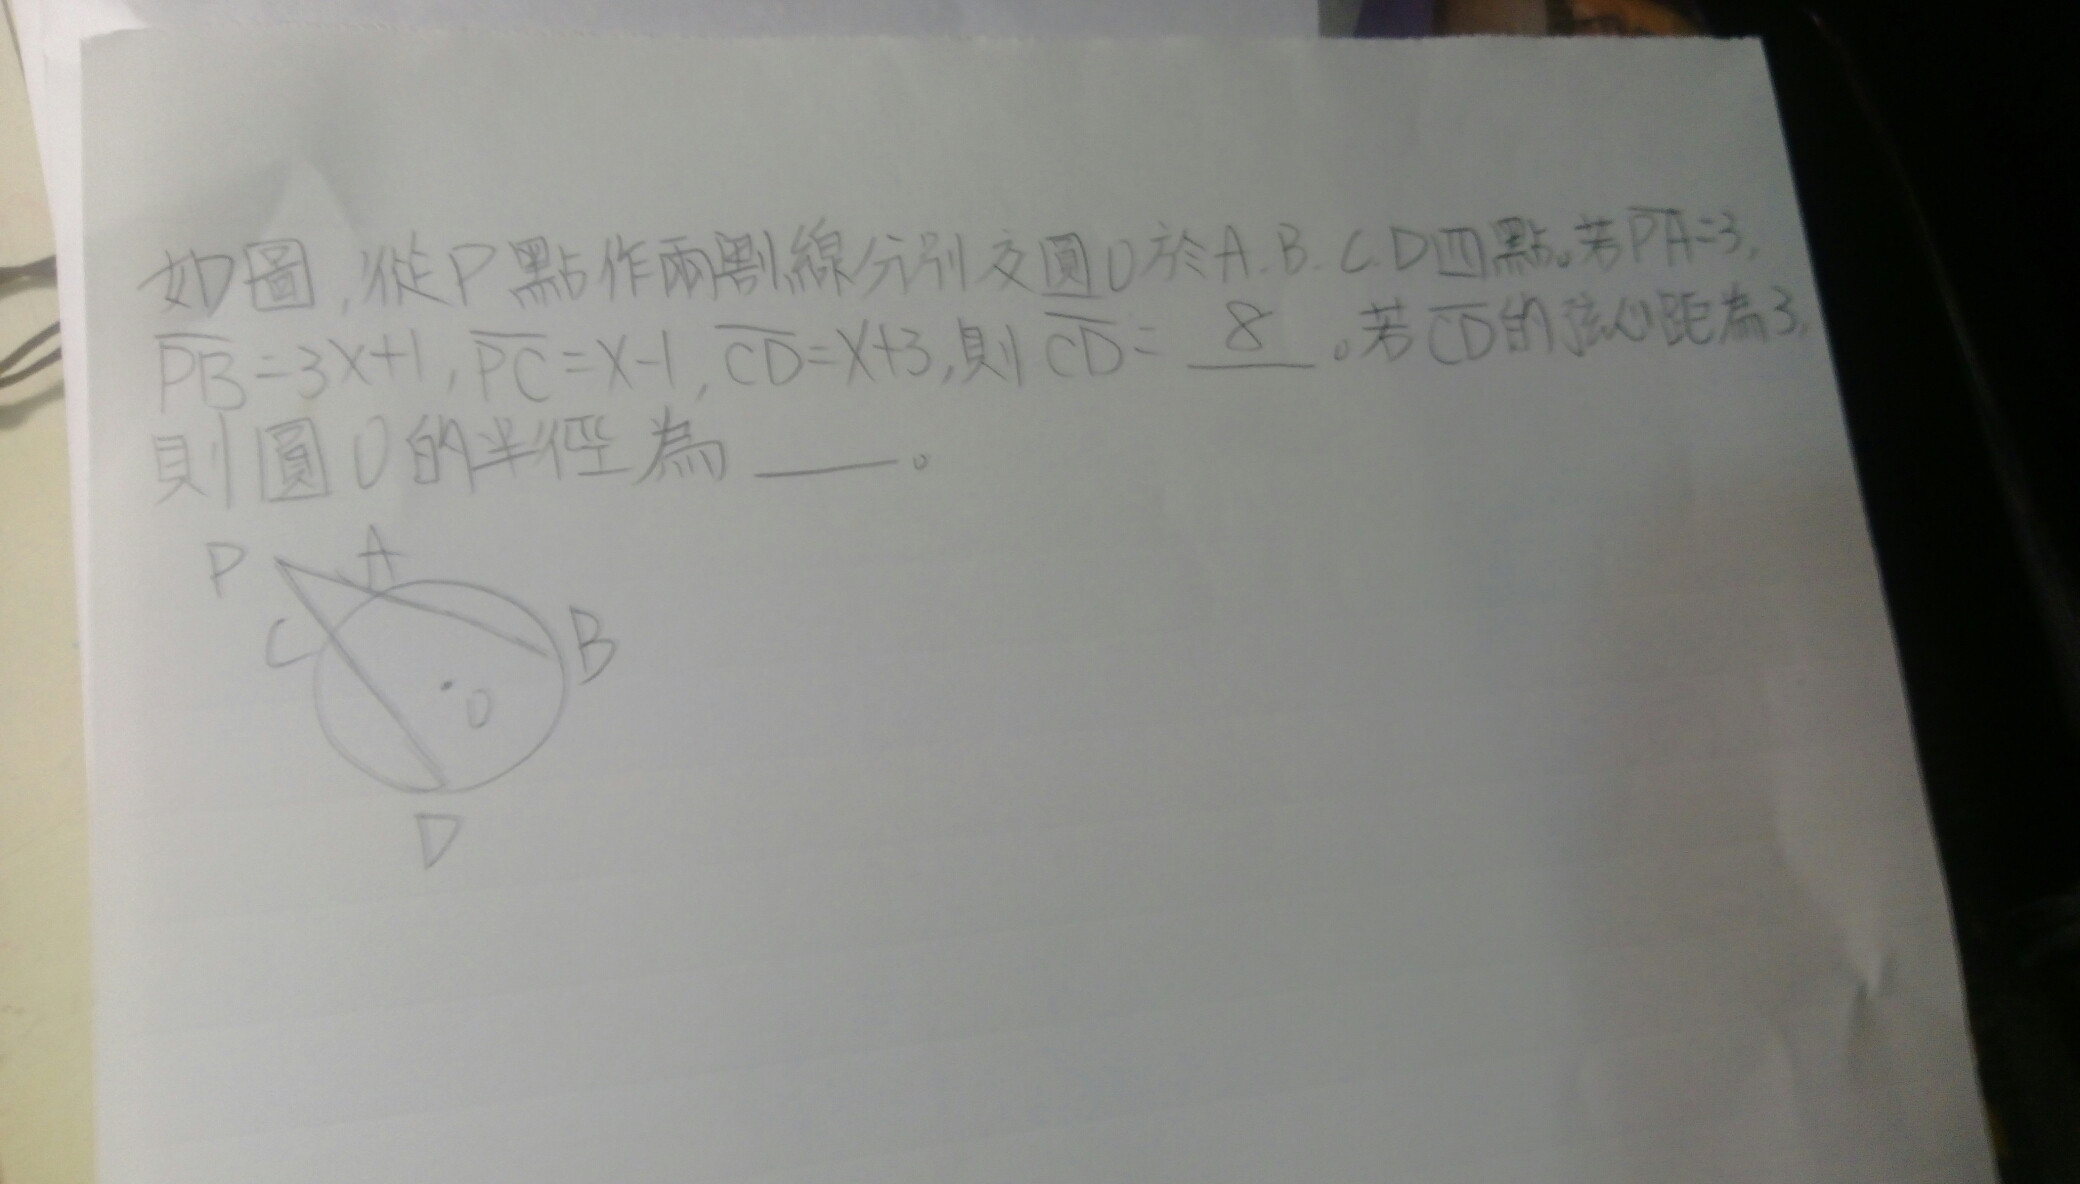 如圖,從P點作兩割線分別交圓O於A.B.C.D四點。若PA=3,
PB=3x+1,PC=x-1,CD=x+3,則CD=8。若CD的弦心距為3,
則圓O的半徑為___。
P
A
C
B
O
D